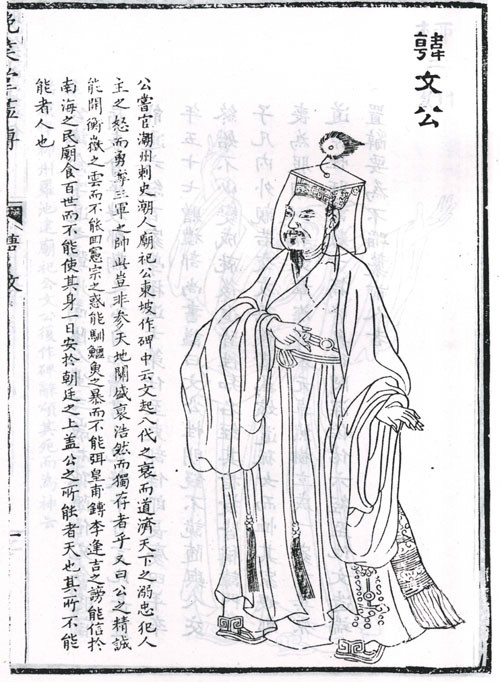 韓文公
公嘗官潮州刺史潮人廟祀公東坡作碑中云文起八代之衰而道濟天下之溺忠犯人
主之怒而勇奪三軍之帥此豈非參天地關盛衰浩然而獨存者乎又曰公之精誠
能開衡嶽之雲而不能回憲宗之惑能馴鱷魚之暴而不能弭皇甫鎛李逢吉之謗能信於
南海之民廟食百世而不能使其身一日安於朝廷之上蓋公之所能者天也其所不能
能者人也
晚笑堂畫傳